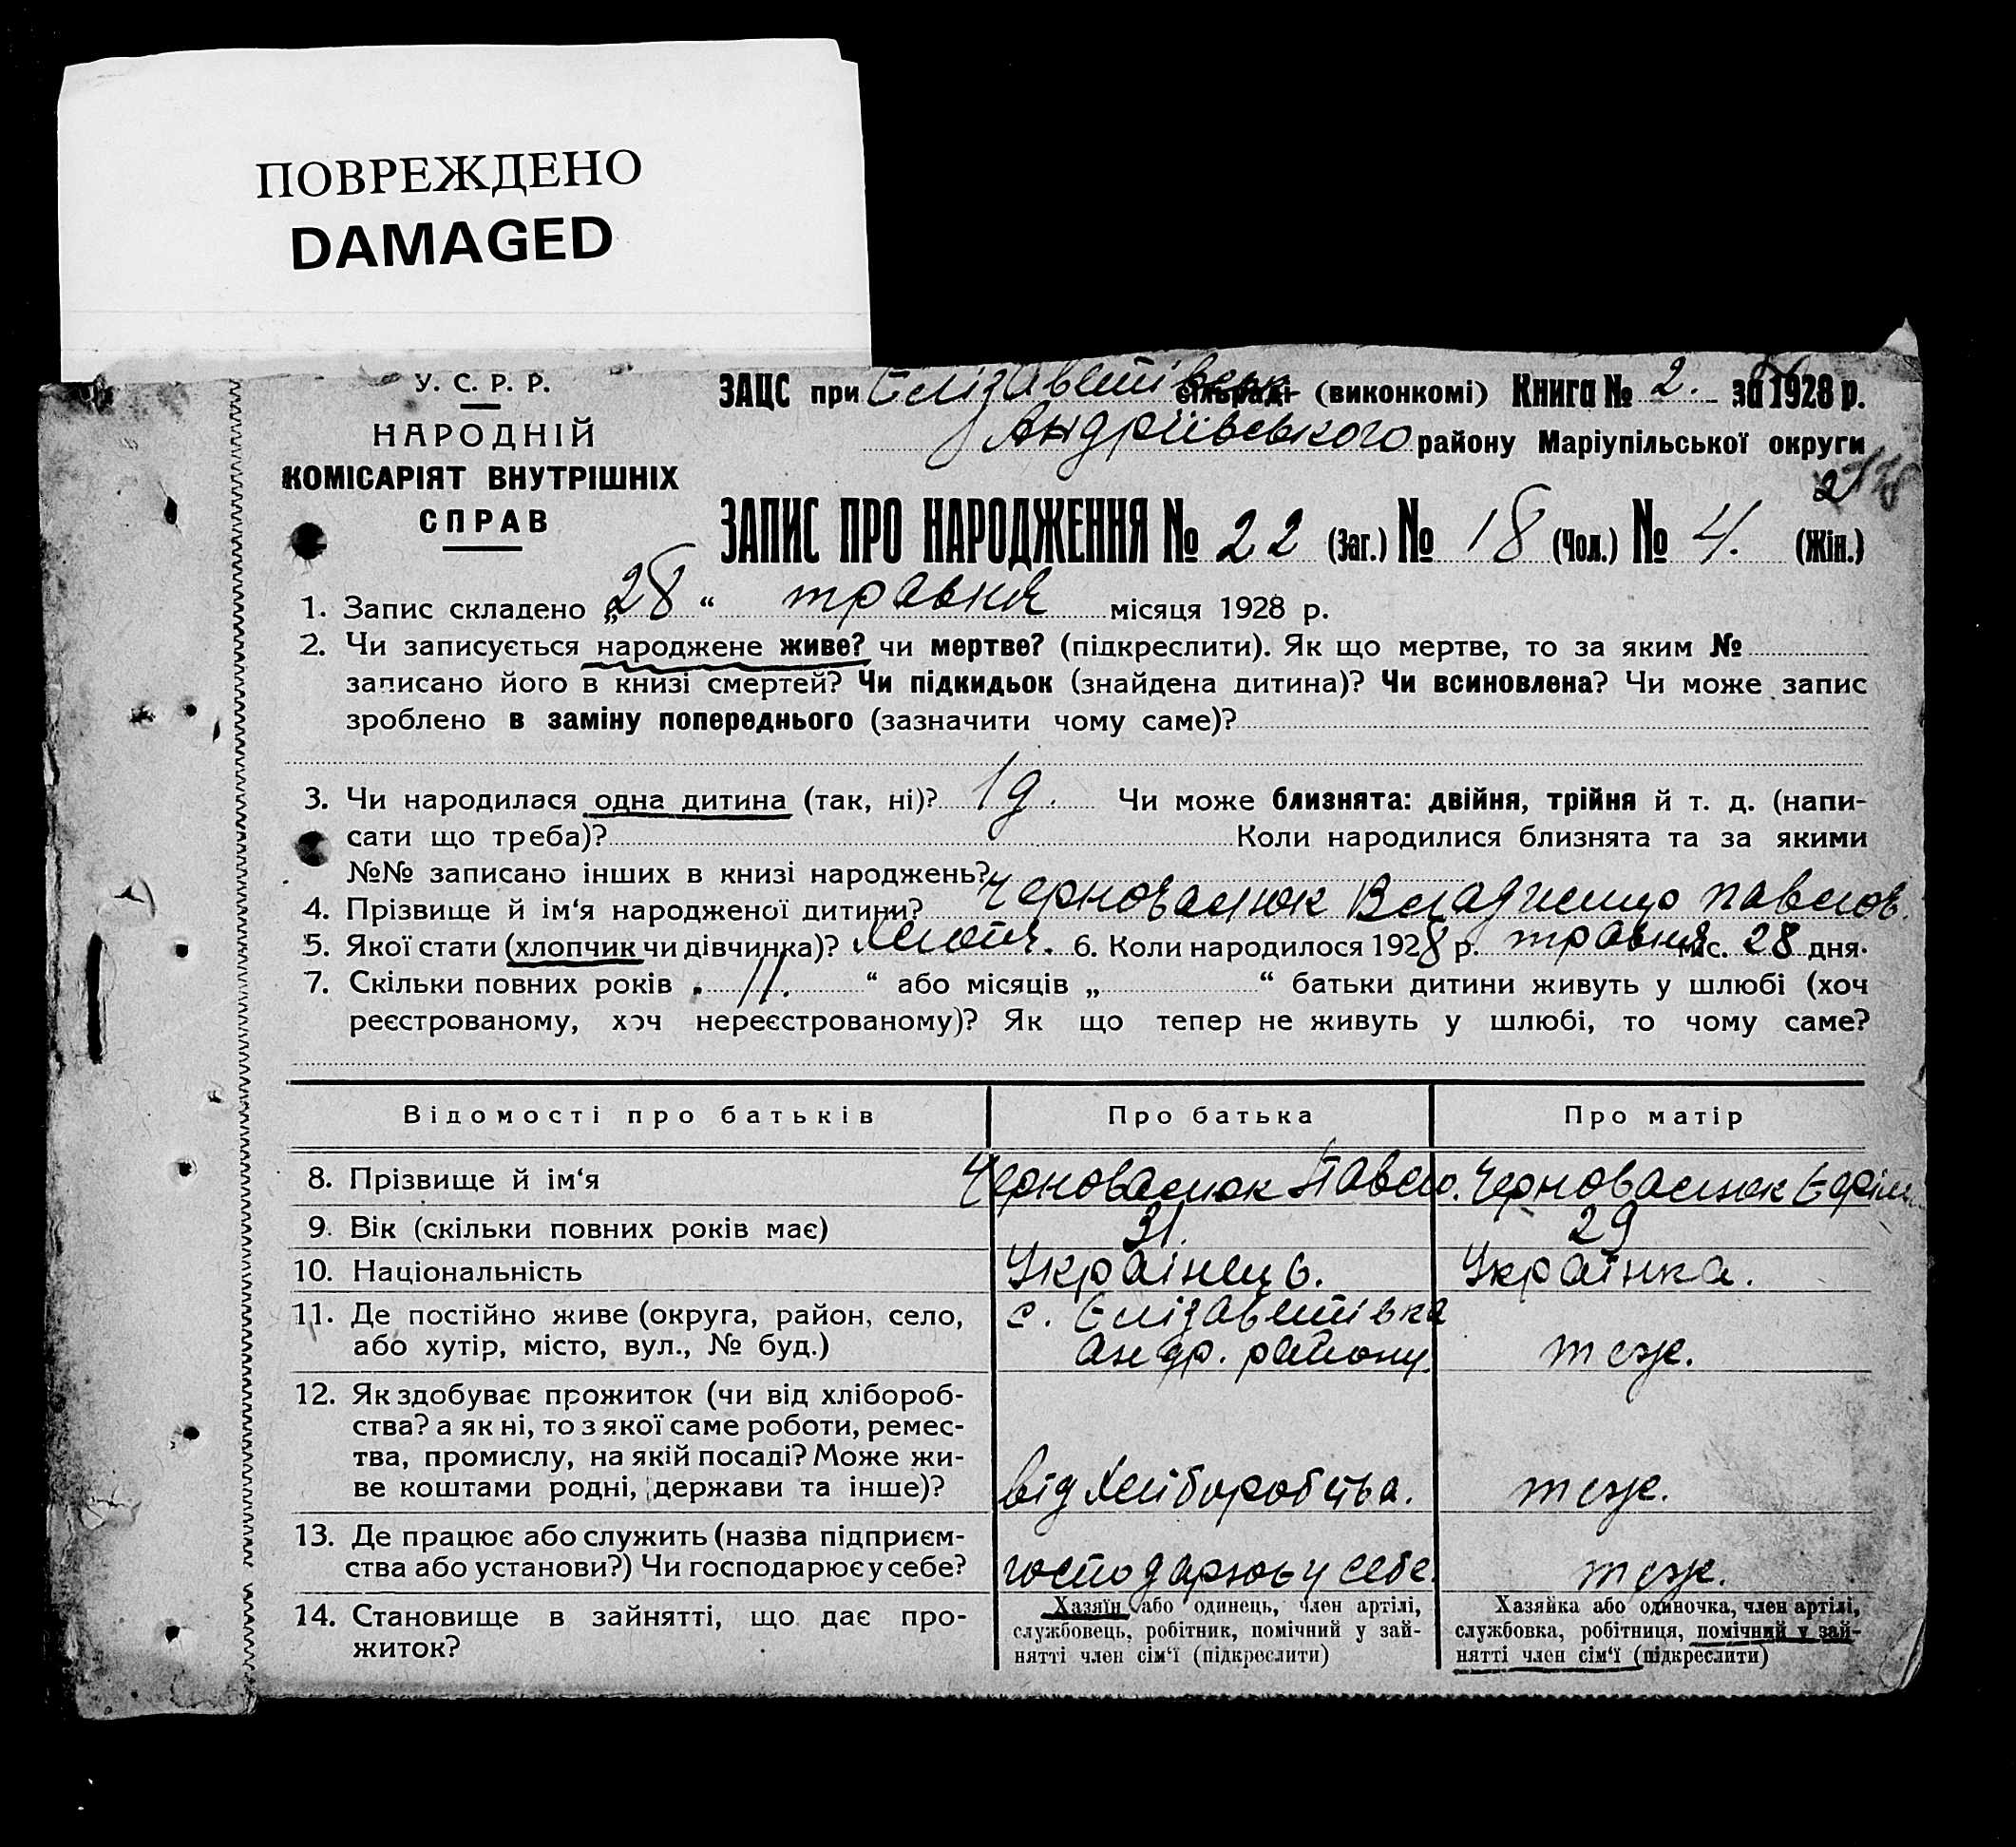 ПОВРЕЖДЕНО
DAMAGED
У. С. Р. Р.
НАРОДНІЙ
КОМІСАРІЯТ ВНУТРІШНІХ
СПРАВ
ЗАЦС при Єлізаветівськ сільраді (виконкомі) Книга № 2. за 1928 р.
Андріївського району Маріупільської округи
ЗАПИС ПРО НАРОДЖЕННЯ № 22 (Заг.) № 18 (Чол.) № 4. (Жін.)
1. Запис складено „28“ травня місяця 1928 р.
2. Чи записується народжене живе? чи мертве? (підкреслити). Як що мертве, то за яким №
записано його в книзі смертей? Чи підкидьок (знайдена дитина)? Чи всиновлена? Чи може запис
зроблено в заміну попереднього (зазначити чому саме)?
3. Чи народилася одна дитина (так, ні)? 1 д. Чи може близнята: двійня, трійня й т. д. (напи-
сати що треба)? Коли народилися близнята та за якими
№№ записано інших в книзі народжень?
4. Прізвище й ім‘я народженої дитини? Черновалюк Владимир Павлов.
5. Якої стати (хлопчик чи дівчинка)? хлопч. 6. Коли народилося 1928 р. травня міс. 28 дня.
7. Скільки повних років „ 11. “ або місяців „ “ батьки дитини живуть у шлюбі (хоч
реєстрованому, хоч нереєстрованому)? Як що тепер не живуть у шлюбі, то чому саме?
Відомості про батьків Про батька Про матір
8. Прізвище й ім‘я Черновалюк Павло. Черновалюк Єфім
9. Вік (скільки повних років має) 31. 29
10. Національність Українець. Українка.
11. Де постійно живе (округа, район, село, с. Єлізаветівка
або хутір, місто, вул., № буд.) Андр. району. теж.
12. Як здобуває прожиток (чи від хлібороб-
ства? а як ні, то з якої саме роботи, ремес-
тва, промислу, на якій посаді? Може жи-
ве коштами родні, держави та інше)? від хліборобства. теж.
13. Де працює або служить (назва підприєм-
ства або установи?) Чи господарює у себе? господарює у себе. теж.
14. Становище в зайнятті, що дає про-
житок?
Хазяїн або одинець, член артілі,
службовець, робітник, помічний у зай-
нятті член сім‘ї (підкреслити)
Хазяйка або одиночка, член артілі,
службовка, робітниця, помічний у зай-
нятті член сім‘ї (підкреслити)